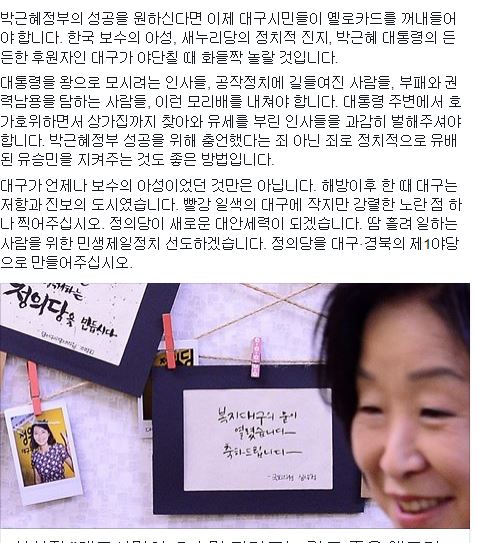 박근혜정부의 성공을 원하신다면 이제 대구시민들이 옐로카드를 꺼내들어
야 합니다. 한국 보수의 아성, 새누리당의 정치적 진지, 박근혜 대통령의 든
든한 후원자인 대구가 야단칠 때 화들짝 놀랄 것입니다.
대통령을 왕으로 모시려는 인사들, 공작정치에 길들여진 사람들, 부패와 권
력남용을 탐하는 사람들, 이런 모리배를 내쳐야 합니다. 대통령 주변에서 호
가호위하면서 상가집까지 찾아와 유세를 부린 인사들을 과감히 벌해주셔야
합니다. 박근혜정부 성공을 위해 충언했다는 죄 아닌 죄로 정치적으로 유배
된 유승민을 지켜주는 것도 좋은 방법입니다.
대구가 언제나 보수의 아성이었던 것만은 아닙니다. 해방이후 한 때 대구는
저항과 진보의 도시였습니다. 빨강 일색의 대구에 작지만 강렬한 노란 점 하
나 찍어주십시오. 정의당이 새로운 대안세력이 되겠습니다. 땀 흘려 일하는
사람을 위한 민생제일정치 선도하겠습니다. 정의당을 대구·경북의 제1야당
으로 만들어주십시오.
정의당을 만듭시다
복지대구의 문이
열렸습니다
축하드립니다